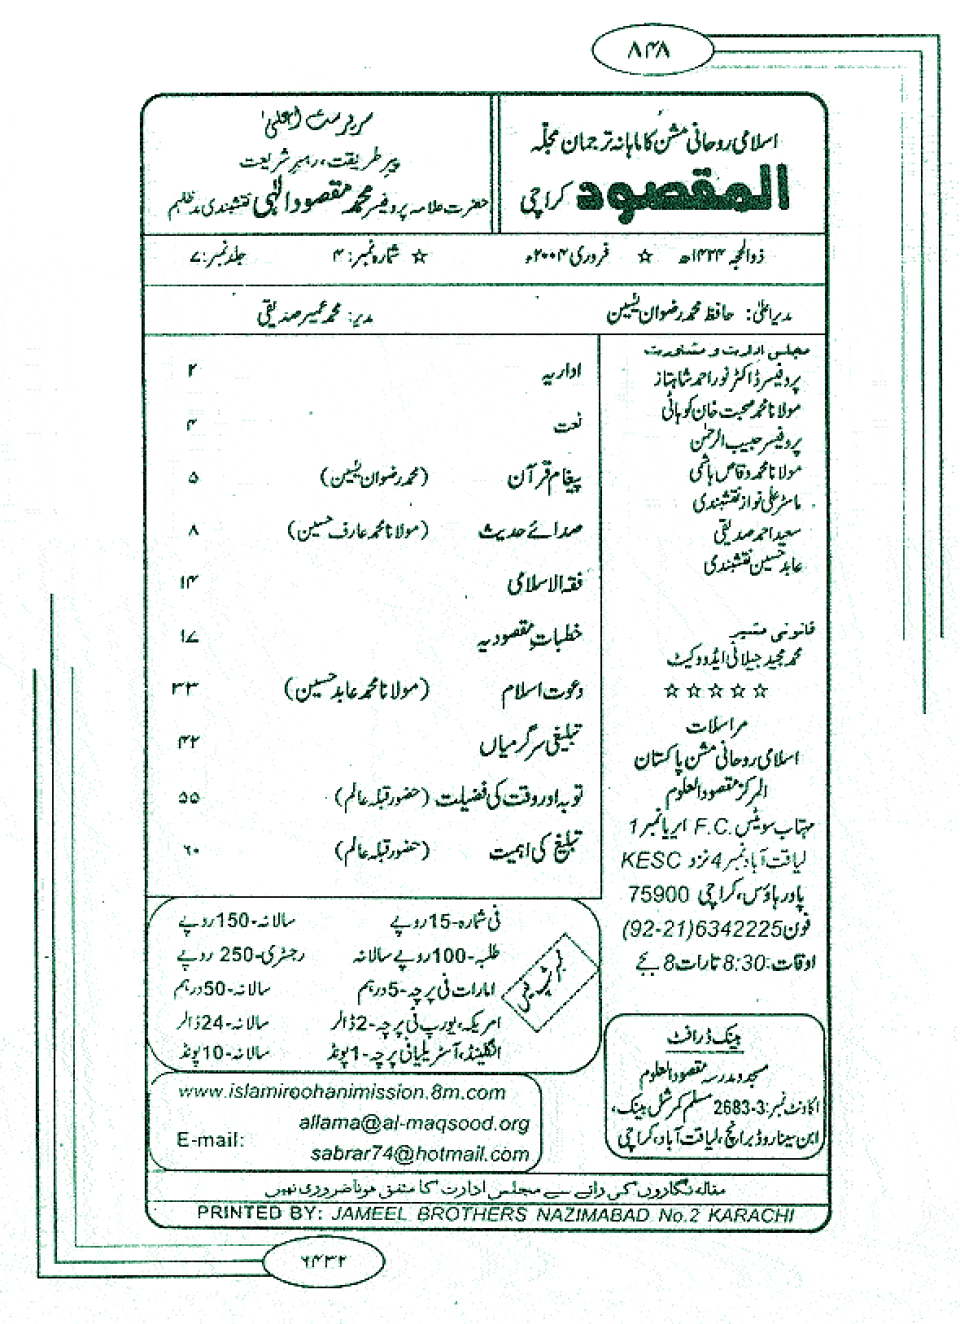 ۸۴۸
اسلامی روحانی مشن کا ماہانہ ترجمان مجلّہ
المقصود کراچی
سرپرست اعلیٰ
پیر طریقت، رہبر شریعت
حضرت علامہ پروفیسر محمد مقصود الٰہی نقشبندی مدظلہم
ذوالحجہ ۱۴۲۴ھ ☆ فروری ۲۰۰۴ء ☆ شمارہ نمبر: ۴ جلد نمبر: ۷
مدیر اعلیٰ: حافظ محمد رضوان یٰسین مدیر: محمد عمیر صدیقی
مجلس ادارت و مشاورت
پروفیسر ڈاکٹر نور احمد شاہتاز
مولانا محمد صحبت خان کوہاٹی
پروفیسر حبیب الرحمٰن
مولانا محمد وقاص ہاشمی
ماسٹر علی نواز نقشبندی
سعید احمد صدیقی
عابد حسین نقشبندی
قانونی مشیر
محمد مجید جیلانی ایڈووکیٹ
☆☆☆☆☆
مراسلات
اسلامی روحانی مشن پاکستان
المرکز مقصود العلوم
مہتاب سویٹس F.C. ایریا نمبر 1
لیاقت آباد نمبر 4 نزد KESC
پاور ہاؤس، کراچی 75900
فون (92-21)6342225
اوقات: 8:30 تا رات 8 بجے
بینک ڈرافٹ
مسجد و مدرسہ مقصود العلوم
اکاؤنٹ نمبر: 3-2683 مسلم کمرشل بینک،
ابن سینا روڈ برانچ، لیاقت آباد، کراچی
اداریہ ۲
نعت ۴
پیغام قرآن (محمد رضوان یٰسین) ۵
صدائے حدیث (مولانا محمد عارف حسین) ۸
فقہ الاسلامی ۱۴
خطبات مقصودیہ ۱۷
دعوت اسلام (مولانا محمد عابد حسین) ۳۳
تبلیغی سرگرمیاں ۴۲
توبہ اور وقت کی فضیلت (حضور قبلہ عالم) ۵۵
تبلیغ کی اہمیت (حضور قبلہ عالم) ۶۰
فی شمارہ-15 روپے سالانہ-150 روپے
طلبہ-100 روپے سالانہ رجسٹری-250 روپے
امارات فی پرچہ-5 درہم سالانہ-50 درہم
امریکہ، یورپ فی پرچہ-2 ڈالر سالانہ-24 ڈالر
انگلینڈ، آسٹریلیا فی پرچہ-1 پونڈ سالانہ-10 پونڈ
www.islamiroohanimission.8m.com
allama@al-maqsood.org
E-mail:
sabrar74@hotmail.com
مقالہ نگاروں کی رائے سے مجلس ادارت کا متفق ہونا ضروری نہیں
PRINTED BY: JAMEEL BROTHERS NAZIMABAD No.2 KARACHI
۶۴۳۲